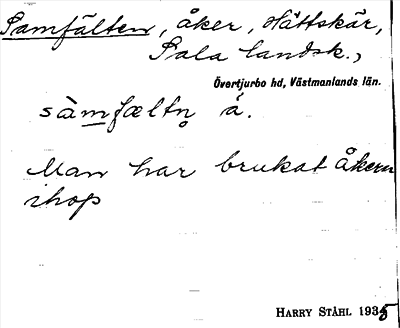 Samfälten, åker, Hättskär,
Sala landsk.,
Övertjurbo hd, Västmanlands län.
sàmfæltn̥ å.
Man har brukat åkern
ihop
HARRY STÅHL 1935